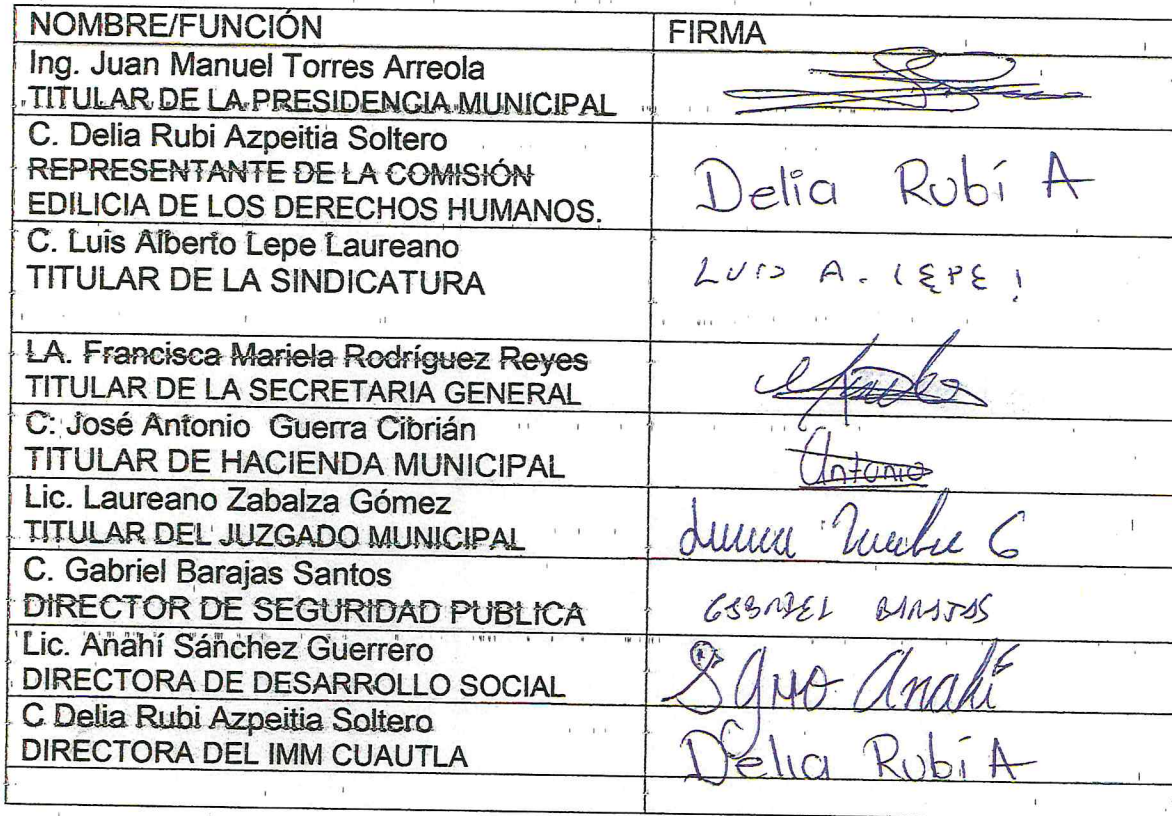 NOMBRE/FUNCIÓN FIRMA
Ing. Juan Manuel Torres Arreola
TITULAR DE LA PRESIDENCIA MUNICIPAL
C. Delia Rubi Azpeitia Soltero
REPRESENTANTE DE LA COMISIÓN
EDILICIA DE LOS DERECHOS HUMANOS.
Delia Rubí A
C. Luis Alberto Lepe Laureano
TITULAR DE LA SINDICATURA
LUIS A. LEPE
LA. Francisca Mariela Rodríguez Reyes
TITULAR DE LA SECRETARIA GENERAL
C: José Antonio Guerra Cibrián
TITULAR DE HACIENDA MUNICIPAL
Antonio
Lic. Laureano Zabalza Gómez
TITULAR DEL JUZGADO MUNICIPAL
C. Gabriel Barajas Santos
DIRECTOR DE SEGURIDAD PUBLICA
GABRIEL BARAJAS
Lic. Anahí Sánchez Guerrero
DIRECTORA DE DESARROLLO SOCIAL
Anahí
C Delia Rubi Azpeitia Soltero
DIRECTORA DEL IMM CUAUTLA
Delia Rubí A